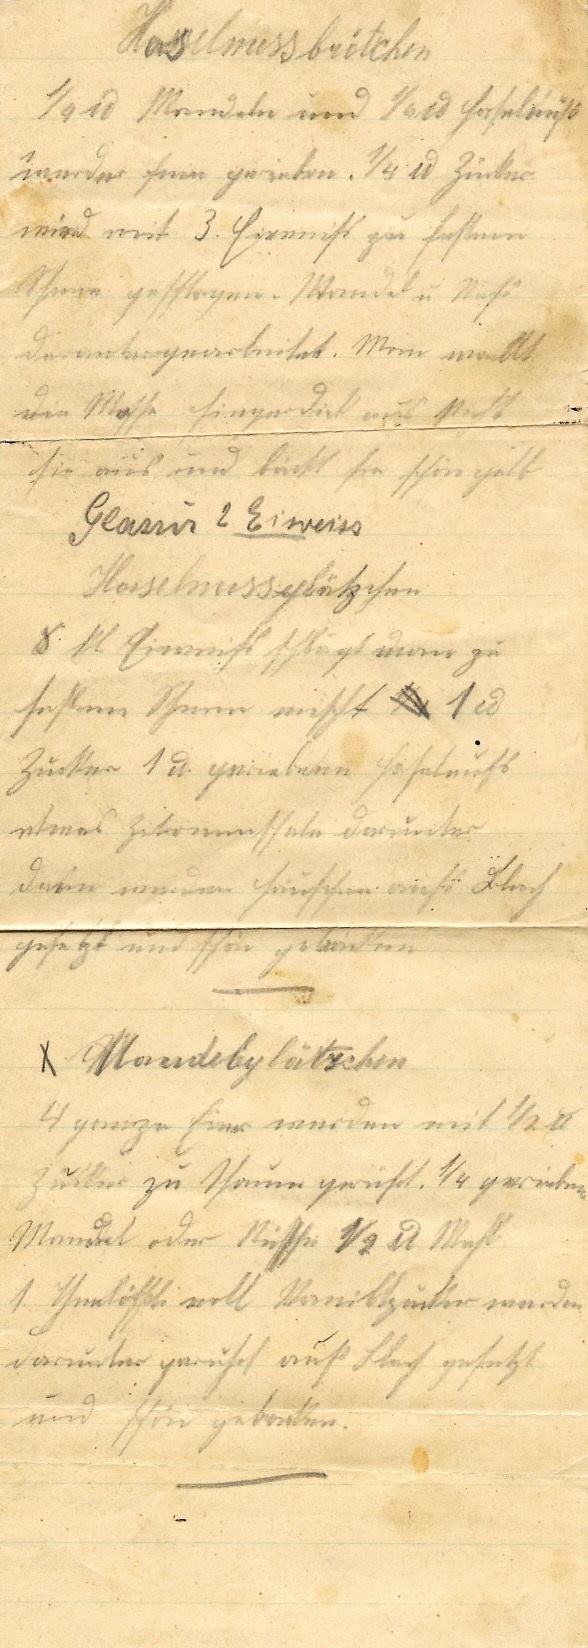 Haselnussbrötchen
Mandeln und Haselnuß
werden fein gerieben. 1/4 ℔ Zucker
wird mit 3. Eiweiß zu festem
Schnee geschlagen. Mandel u Nuß
daruntergearbeitet. Man wellt
die Masse fingerdick aus sticht
sie aus und backt sie schön gelb
Glasur 2 Eiweiss
Haselnussplätzchen
8 Eiweiß schlägt man zu
festem Schnee mischt 1 ℔
Zucker 1 ℔ geriebene Haselnuß
etwas Zitronenschale darunter
dann werden Häufchen aufs Blech
gesetzt und schön gebacken
X Mandelplätzchen
4 ganze Eier werden mit 1/2 ℔
Zucker zu Schaum gerührt. 1/4 geriebene
Mandel oder Nüsse 1/2 ℔ Mehl
1 Theelöffel voll Vanillzucker werden
darunter gerührt aufs Blech gesetzt
und schön gebacken.